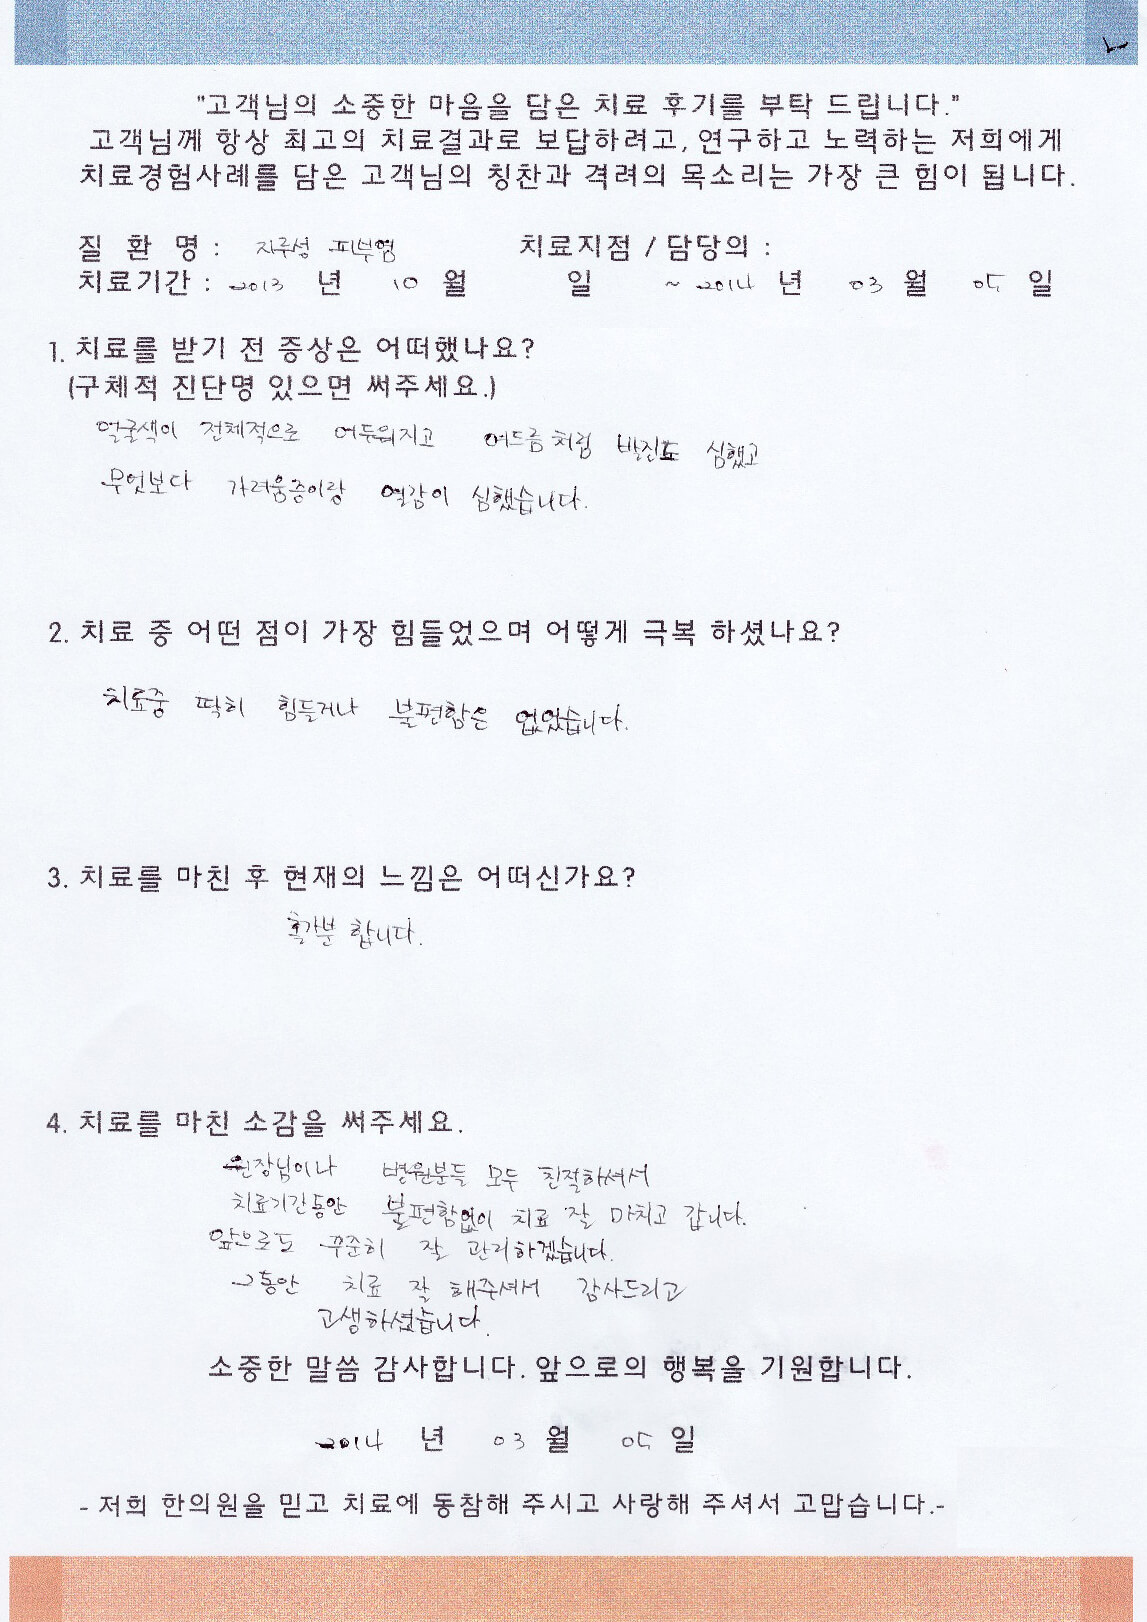 "고객님의 소중한 마음을 담은 치료 후기를 부탁 드립니다."
고객님께 항상 최고의 치료결과로 보답하려고, 연구하고 노력하는 저희에게
치료경험사례를 담은 고객님의 칭찬과 격려의 목소리는 가장 큰 힘이 됩니다.
질 환 명 : 지루성 피부염 치료지점 / 담당의 :
치료기간 : 2013 년 10 월 일 ~ 2014 년 03 월 05 일
1. 치료를 받기 전 증상은 어떠했나요?
(구체적 진단명 있으면 써주세요.)
얼굴색이 전체적으로 어두워지고 여드름처럼 발진도 심했고
무엇보다 가려움증이랑 열감이 심했습니다.
2. 치료 중 어떤 점이 가장 힘들었으며 어떻게 극복 하셨나요?
치료중 딱히 힘들거나 불편함은 없었습니다.
3. 치료를 마친 후 현재의 느낌은 어떠신가요?
홀가분 합니다.
4. 치료를 마친 소감을 써주세요.
원장님이나 병원분들 모두 친절하셔서
치료기간동안 불편함없이 치료 잘 마치고 갑니다.
앞으로도 꾸준히 잘 관리하겠습니다.
그동안 치료 잘 해주셔서 감사드리고
고생하셨습니다.
소중한 말씀 감사합니다. 앞으로의 행복을 기원합니다.
2014 년 03 월 05 일
- 저희 한의원을 믿고 치료에 동참해 주시고 사랑해 주셔서 고맙습니다.-